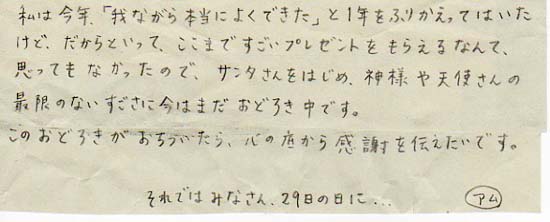 私は今年、「我ながら本当によくできた」と1年をふりかえってはいた
けど、だからといって、ここまですごいプレゼントをもらえるなんて、
思ってもなかったので、サンタさんをはじめ、神様や天使さんの
最限のないすごさに今はまだおどろき中です。
このおどろきがおちついたら、心の底から感謝を伝えたいです。
それではみなさん、29日の日に...
アム